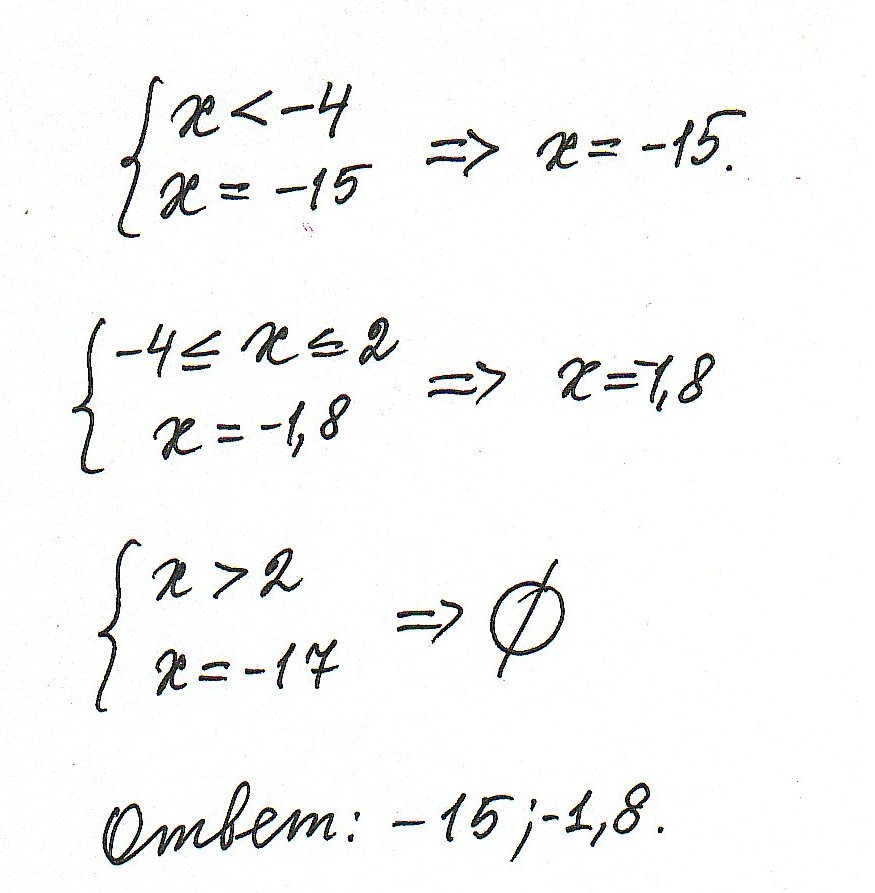 { x < -4
x = -15 => x = -15.
{ -4 ≤ x ≤ 2
x = -1,8 => x = -1,8
{ x > 2
x = -17 => ∅
Ответ: -15; -1,8.